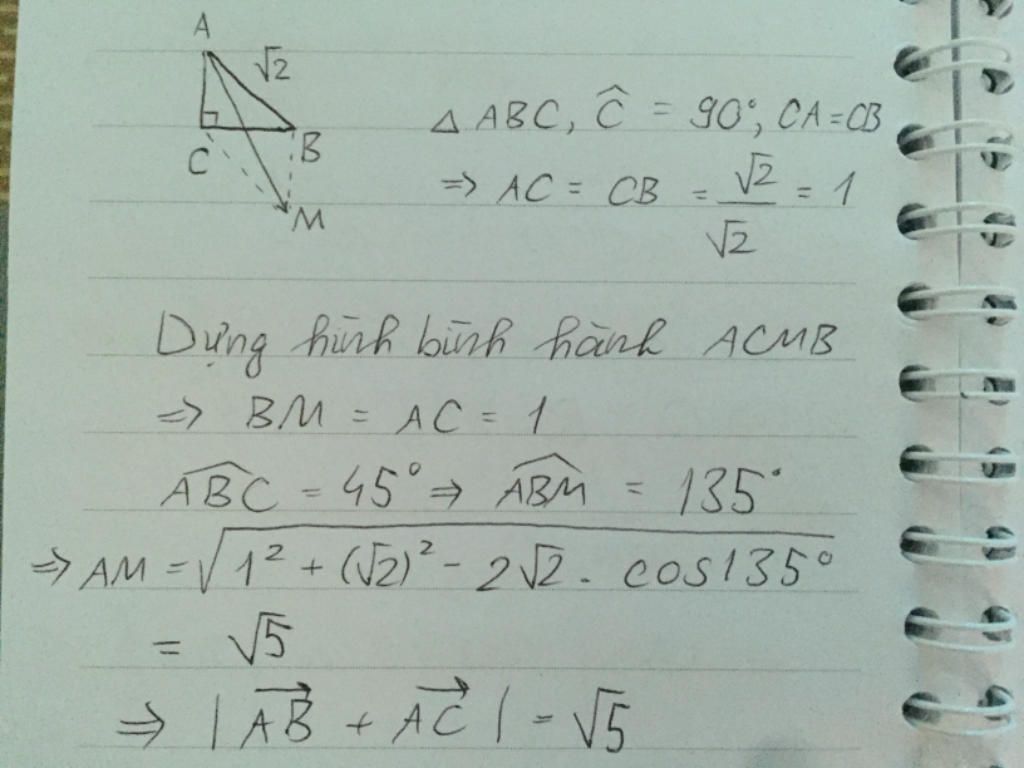 A
√2
C
B
M
△ ABC, Ĉ = 90°, CA = CB
⇒ AC = CB = √2/√2 = 1
Dựng hình bình hành ACMB
⇒ BM = AC = 1
\widehat{ABC} = 45° ⇒ \widehat{ABM} = 135°
⇒ AM = √(1² + (√2)² - 2√2 . cos135°)
= √5
⇒ |\overrightarrow{AB} + \overrightarrow{AC}| = √5